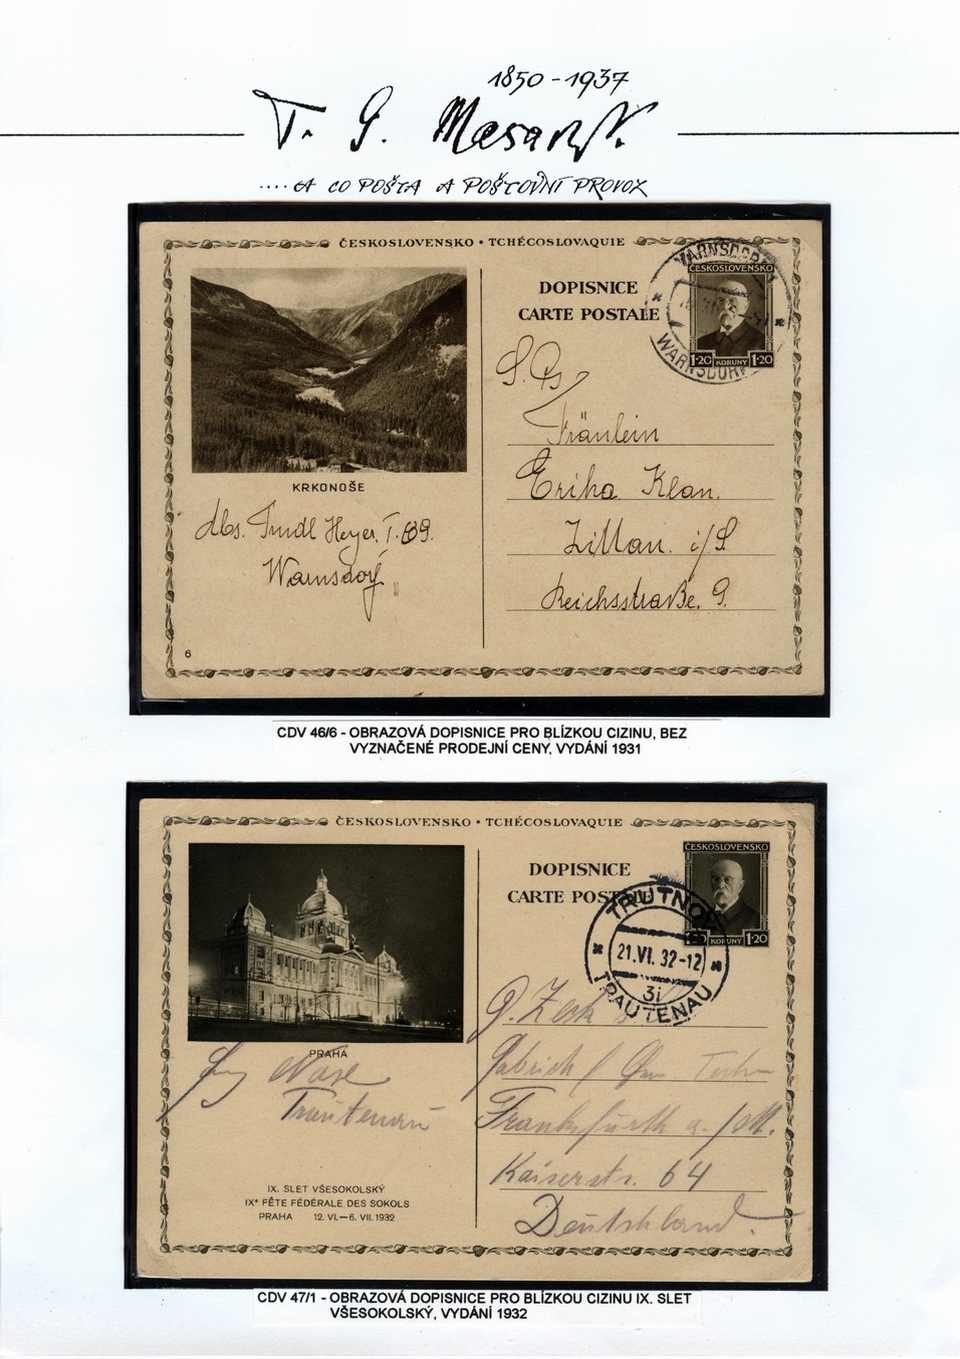 1850-1937
T. G. Masaryk.
....A CO POŠTA A POŠTOVNÍ PROVOZ
ČESKOSLOVENSKO • TCHÉCOSLOVAQUIE
DOPISNICE
CARTE POSTALE
ČESKOSLOVENSKO
1·20 KORUNY 1·20
VARNSDORF
WARNSDORF
KRKONOŠE
Fräulein
Erika Klan.
Zittau. i/S
Reichsstraße. 9.
Abs. Trudl Heyer.
Warnsdorf
6
CDV 46/6 - OBRAZOVÁ DOPISNICE PRO BLÍZKOU CIZINU, BEZ
VYZNAČENÉ PRODEJNÍ CENY, VYDÁNÍ 1931
ČESKOSLOVENSKO • TCHÉCOSLOVAQUIE
DOPISNICE
CARTE POSTALE
ČESKOSLOVENSKO
KORUNY 1·20
TRUTNOV
21.VI.32-12
3i
TRAUTENAU
PRAHA
Trautenau
Frankfurth a./M.
Kaiserstr. 64
Deutschland.
IX. SLET VŠESOKOLSKÝ
IXe FÊTE FÉDÉRALE DES SOKOLS
PRAHA 12. VI.—6. VII. 1932
CDV 47/1 - OBRAZOVÁ DOPISNICE PRO BLÍZKOU CIZINU IX. SLET
VŠESOKOLSKÝ, VYDÁNÍ 1932